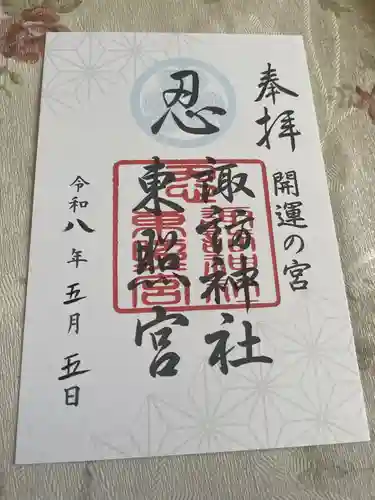 奉拝
開運の宮
忍
諏訪神社
東照宮
令和八年五月五日